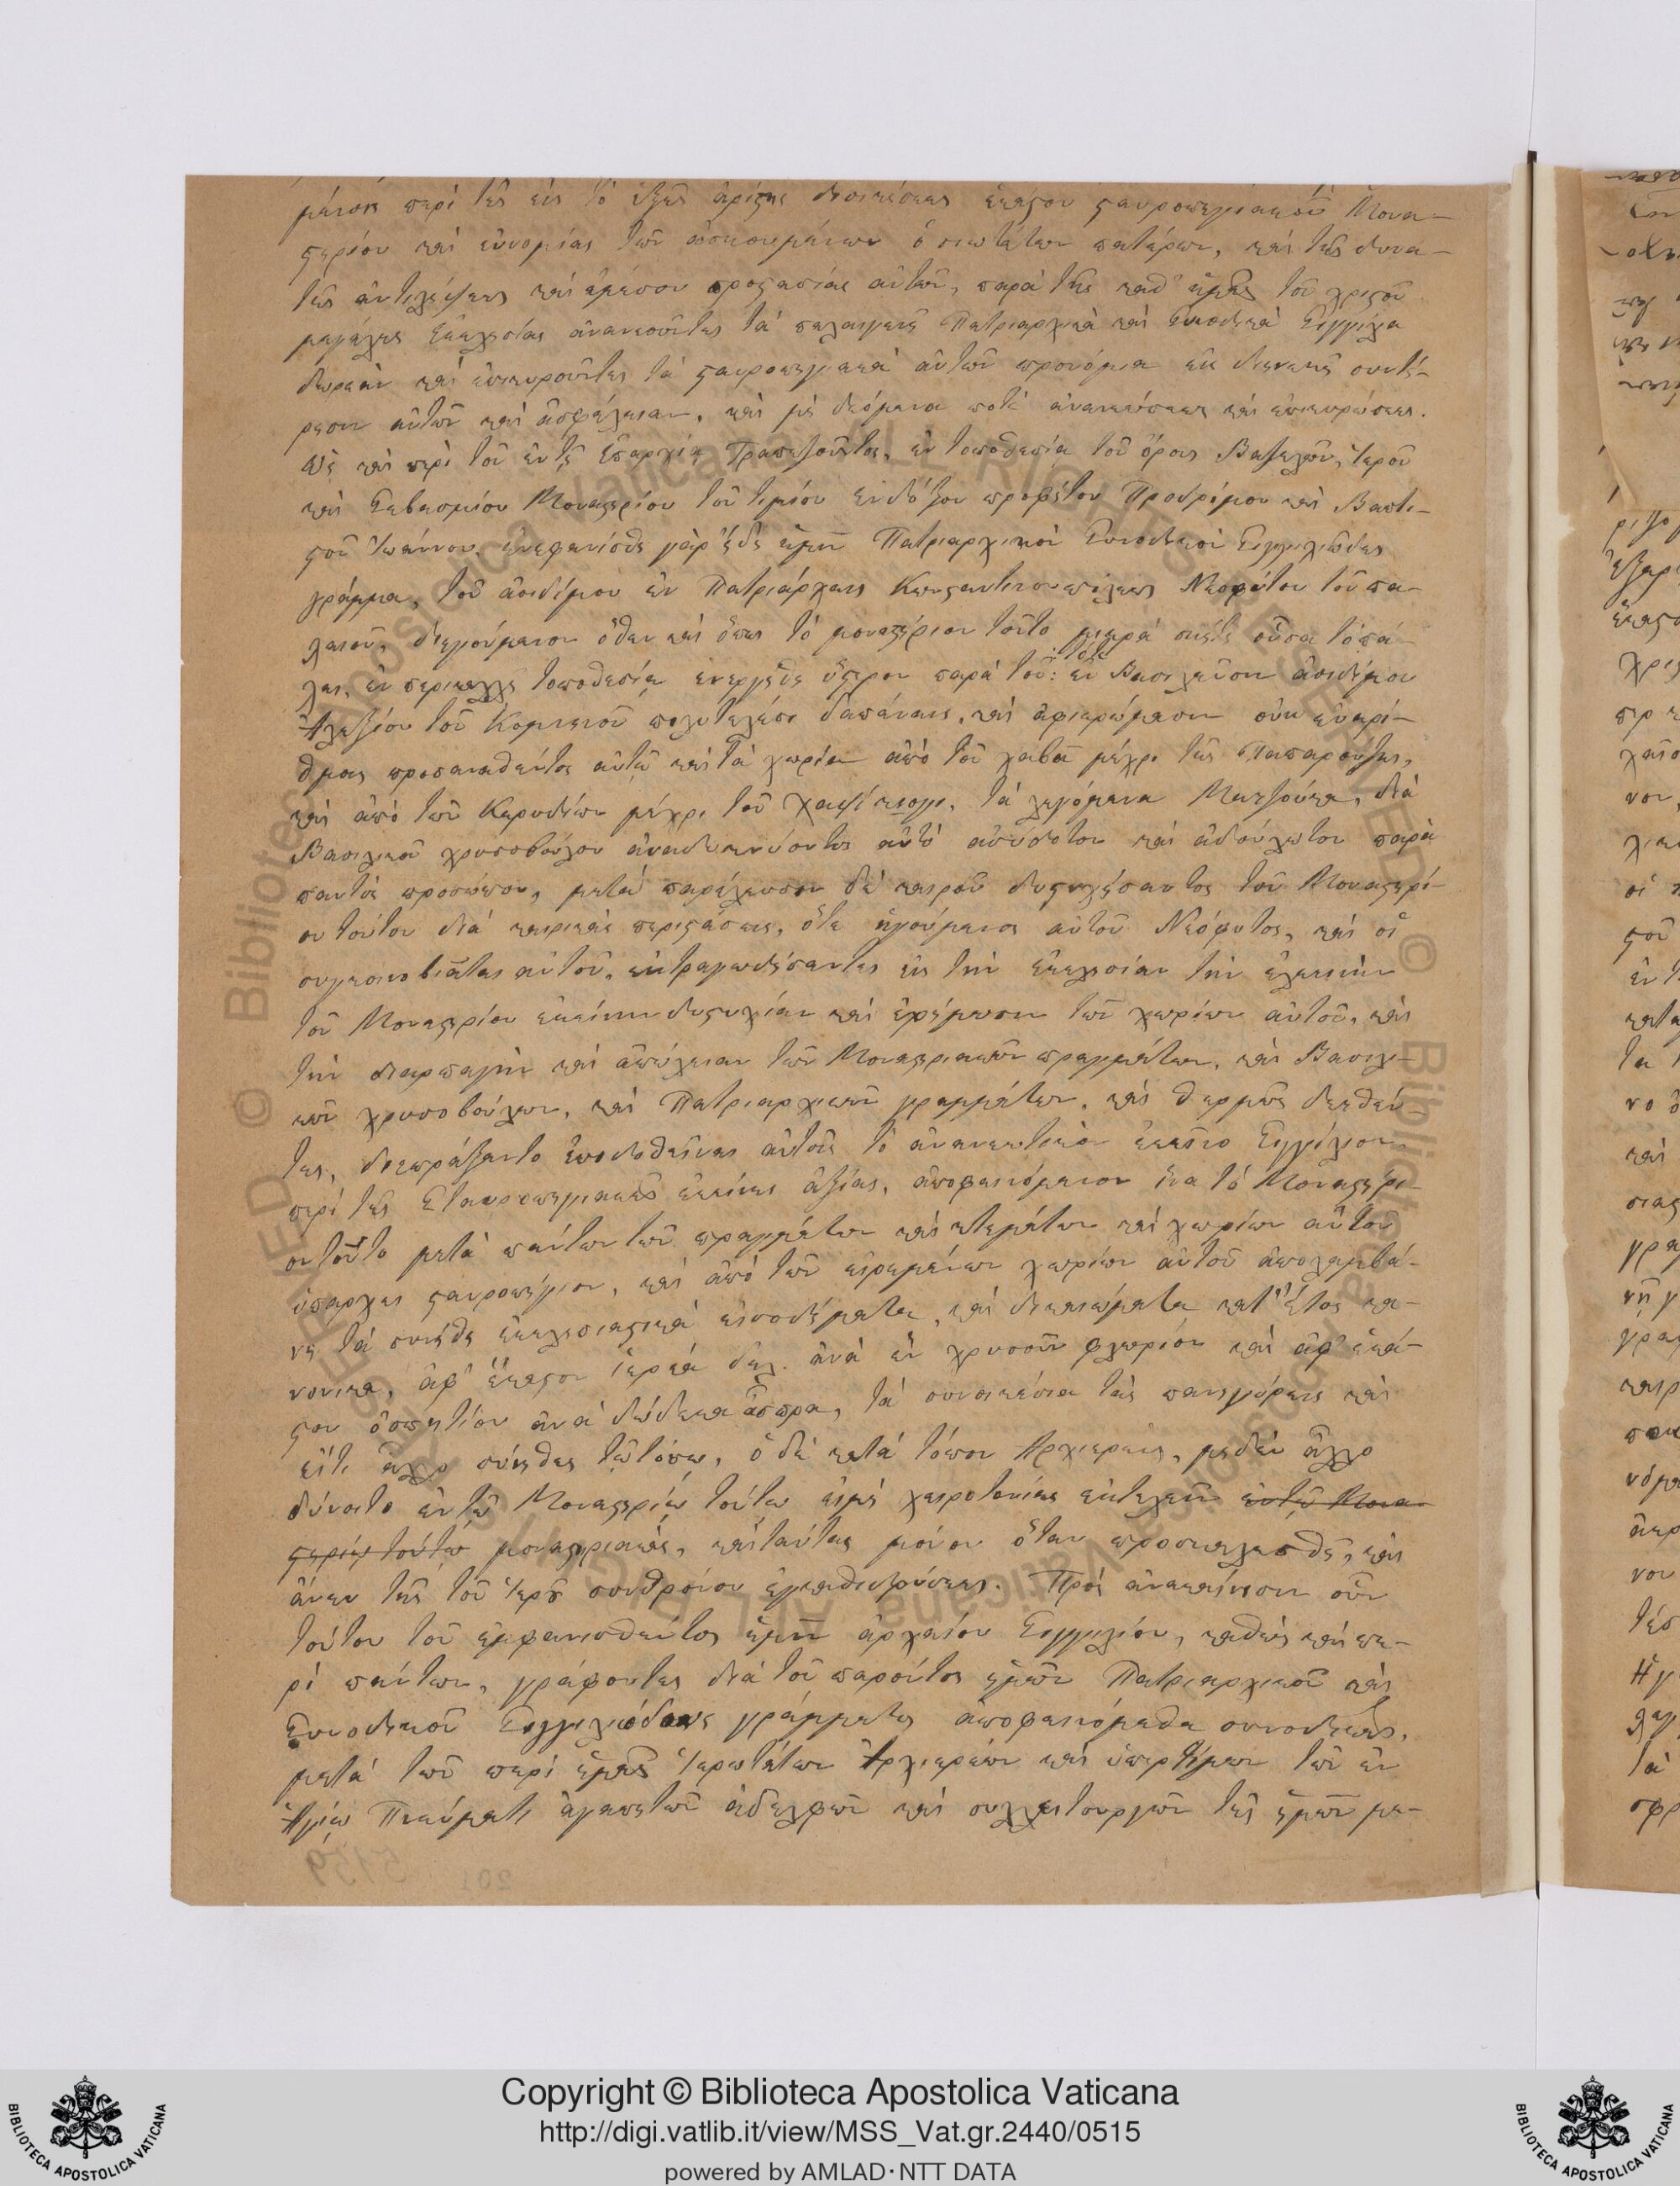 μένοις περὶ τῆς εἰς τὸ ἑξῆς ἀρίστης διοικήσεως ἑκάστου σταυροπηγιακοῦ Μονα-
στηρίου καὶ εὐνομίας τῶν ἀσκουμένων ὁσιωτάτων πατέρων, καὶ τῆς δυνα-
τῆς ἀντιλήψεως καὶ ἀμέσου προστασίας αὐτῶν, παρὰ τῆς καθ' ἡμᾶς τοῦ χριστοῦ
μεγάλης Ἐκκλησίας ἀνανεοῦντες τὰ παλαιγενῆ Πατριαρχικὰ καὶ Συνοδικὰ Σιγγίλια
δωρεὰν καὶ ἐπικυροῦντες τὰ σταυροπηγιακὰ αὐτῶν προνόμια εἰς διηνεκῆ συντή-
ρησιν αὐτῶν καὶ ἀσφάλειαν, καὶ μὴ δεόμενα ποτὲ ἀνανεώσεως καὶ ἐπικυρώσεως.
Ὡς καὶ περὶ τοῦ ἐν τῇ Ἐπαρχίᾳ Τραπεζοῦντος, ἐν τοποθεσίᾳ τοῦ ὄρους Βαζελῶν, Ἱεροῦ
καὶ Σεβασμίου Μοναστηρίου τοῦ τιμίου ἐνδόξου προφήτου Προδρόμου καὶ Βαπτι-
στοῦ Ἰωάννου. ἐνεφανίσθη γὰρ ἤδη ἡμῖν Πατριαρχικὸν Συνοδικὸν Σιγγιλιῶδες
γράμμα, τοῦ ἀοιδίμου ἐν Πατριάρχαις Κωνσταντινουπόλεως Νεοφύτου τοῦ πα-
λαιοῦ, διηγούμενον ὅθεν καὶ ὅπως τὸ μοναστήριον τοῦτο μικρὰ σκήτη οὖσα τὸ πά-
λαι, ἐν περικαλλῇ τοποθεσίᾳ ἀνεγέρθη ὕστερον παρὰ τοῦ: τότε ἐν Βασιλεῦσιν ἀοιδίμου
Ἀλεξίου τοῦ Κομνηνοῦ πολυτελέσι δαπάναις, καὶ ἀφιερώμασιν οὐκ εὐαρί-
θμοις προσανατεθέντος αὐτῷ καὶ τὰ χωρία ἀπὸ τοῦ χαβᾶ μέχρι τῆς Παπαρούζης,
καὶ ἀπὸ τῶν Καρυδίων μέχρι τοῦ Χαψίκιογι, τὰ λεγόμενα Ματζούκα, διὰ
Βασιλικοῦ χρυσοβούλου ἀναδεικνύοντος αὐτὸ ἀσύδοτον καὶ ἀδούλωτον παρὰ
παντὸς προσώπου, μετὰ παρέλευσιν δὲ καιροῦ δυστυχήσαντος τοῦ Μοναστηρί-
ου τούτου διὰ καιρικὰς περιστάσεις, ὅτε ἡγούμενος αὐτοῦ Νεόφυτος, καὶ οἱ
συγκοινοβιᾶται αὐτοῦ, ἐκτραγωδήσαντες εἰς τὴν ἐκκλησίαν τὴν ἐλεεινὴν
τοῦ Μοναστηρίου ἐκείνην δυστυχίαν καὶ ἐρήμωσιν τῶν χωρίων αὐτοῦ, καὶ
τὴν διαρπαγὴν καὶ ἀπώλειαν τῶν Μοναστηριακῶν πραγμάτων, καὶ Βασιλι-
κῶν χρυσοβούλων, καὶ Πατριαρχικῶν γραμμάτων, καὶ θερμῶς δεηθέν-
τες, διεπράξαντο ἐπιδοθῆναι αὐτοῖς τὸ ἀνανεωτικὸν ἐκεῖνο Σιγγίλιον
περὶ τῆς Σταυροπηγιακῆς ἐκείνης ἀξίας, ἀποφαινόμενον ἵνα τὸ Μοναστήρι-
ον τοῦτο μετὰ πάντων τῶν πραγμάτων καὶ κτημάτων καὶ χωρίων αὐτοῦ
ὑπάρχει σταυροπήγιον, καὶ ἀπὸ τῶν εἰρημένων χωρίων αὐτοῦ ἀπολαμβά-
νῃ τὰ συνήθη ἐκκλησιαστικὰ εἰσοδήματα, καὶ δικαιώματα κατ' ἔτος κα-
νονικά, ἀφ' ἑκάστου ἱερέα δηλ. ἀνὰ ἓν χρυσοῦν φλωρίον καὶ ἀφ' ἑκά-
στου ὁσπητίου ἀνὰ δώδεκα ἄσπρα, τὰ συνοικέσια τὰς πανηγύρεις καὶ
εἴτι ἄλλο σύνηθες τῷ τόπῳ, ὁ δὲ κατὰ τόπον Ἀρχιερεὺς, μηδὲν ἄλλο
δύναιτο ἐν τῷ Μοναστηρίῳ τούτῳ εἰμὴ χειροτονίας ἐκτελεῖν ἐν τῷ Μονα-
στηρίῳ τούτῳ μοναστηριακὰς, καὶ ταύτας μόνον ὅταν προσκαλεσθῇ, καὶ
ἄνευ τῆς τοῦ ἱεροῦ συνθρόνου ἐγκαθιδρύσεως. Πρὸς ἀνακαίνισιν οὖν
τούτου τοῦ ἐμφανισθέντος ἡμῖν ἀρχαίου Σιγγιλίου, καθὼς καὶ πε-
ρὶ πάντων, γράφοντες διὰ τοῦ παρόντος ἡμῶν Πατριαρχικοῦ καὶ
Συνοδικοῦ Σιγγιλιώδους γράμματος ἀποφαινόμεθα συνοδικῶς,
μετὰ τῶν περὶ ἡμᾶς Ἱερωτάτων Ἀρχιερέων καὶ ὑπερτίμων τῶν ἐν
Ἁγίῳ Πνεύματι ἀγαπητῶν ἀδελφῶν καὶ συλλειτουργῶν τῆς ἡμῶν με-
Copyright © Biblioteca Apostolica Vaticana
http://digi.vatlib.it/view/MSS_Vat.gr.2440/0515
powered by AMLAD·NTT DATA
BIBLIOTECA APOSTOLICA VATICANA
BIBLIOTECA APOSTOLICA VATICANA